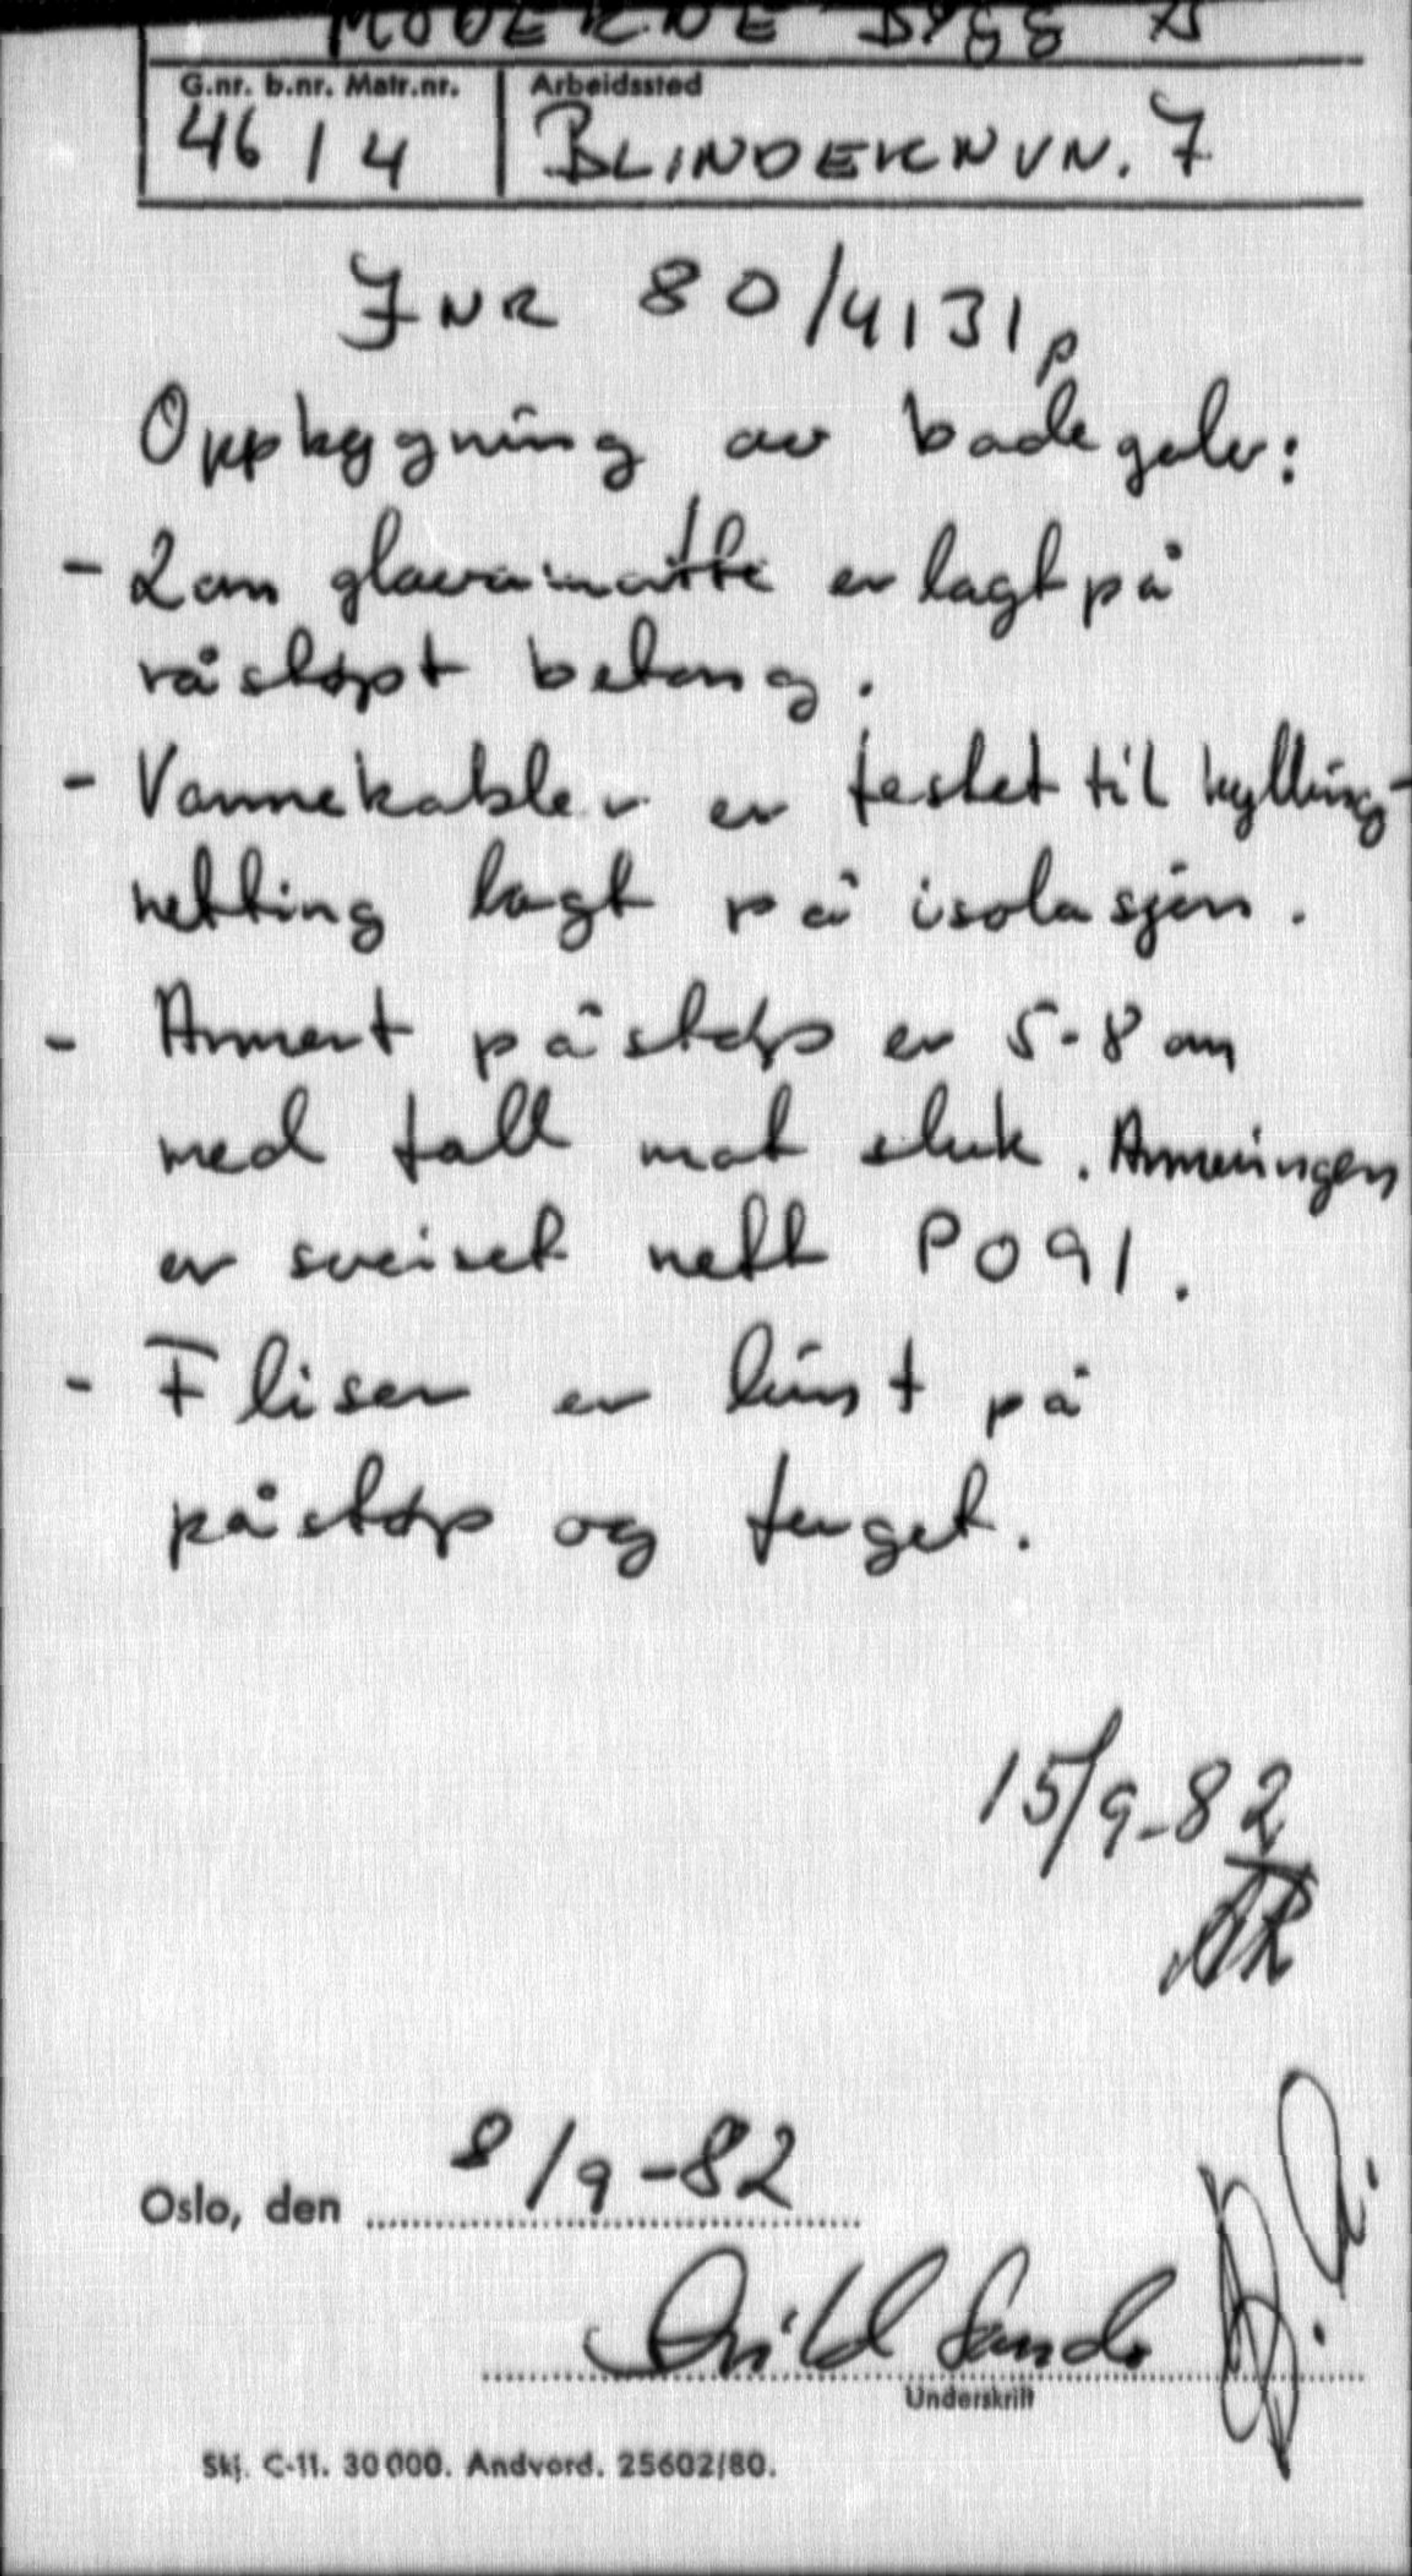 MODERNE BYGG AS
G.nr. b.nr. Matr.nr. Arbeidssted
46 / 4 BLINDERNVN. 7
JNR 80/4131 p
Oppbygning av badegolv:
- 2 cm glavamatte er lagt på
råstøpt betong.
- Varmekabler er festet til kylling-
netting lagt på isolasjon.
- Armert påstøp er 5-8 cm
med fall mot sluk. Armeringen
er sveiset nett P091.
- Fliser er limt på
påstøp og fuget.
15/9-82
Oslo, den 8/9-82
Underskrift
Skj. C-11. 30 000. Andvord. 25602/80.